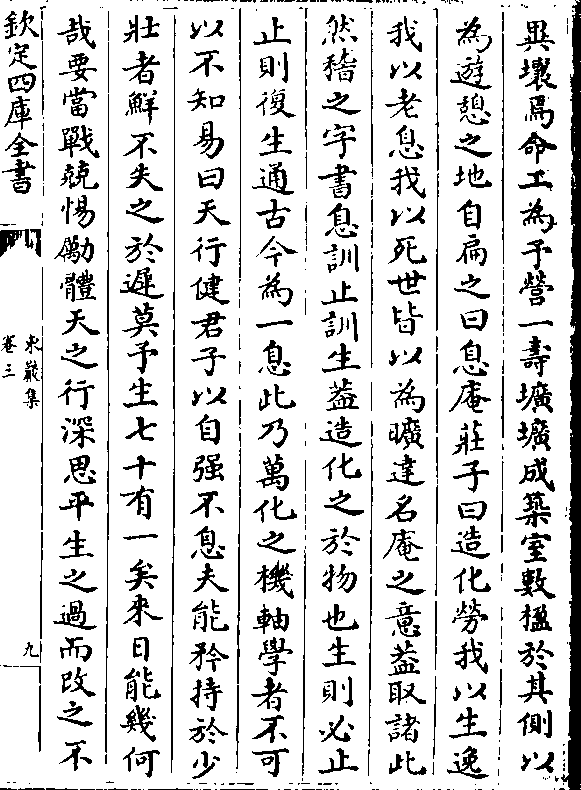 異壤焉命工為予營一壽壙壙成築室數楹於其側以
為遊憩之地自扁之曰息庵莊子曰造化勞我以生逸
我以老息我以死世皆以為曠達名庵之意葢取諸此
然稽之字書息訓止訓生葢造化之於物也生則必止
止則復生通古今為一息此乃萬化之機軸學者不可
以不知易曰天行健君子以自强不息夫能矜持於少
壯者鮮不失之於遲莫予生七十有一矣來日能幾何
哉要當戰兢惕勵體天之行深思平生之過而改之不
欽定四庫全書
東巖集
卷三
九